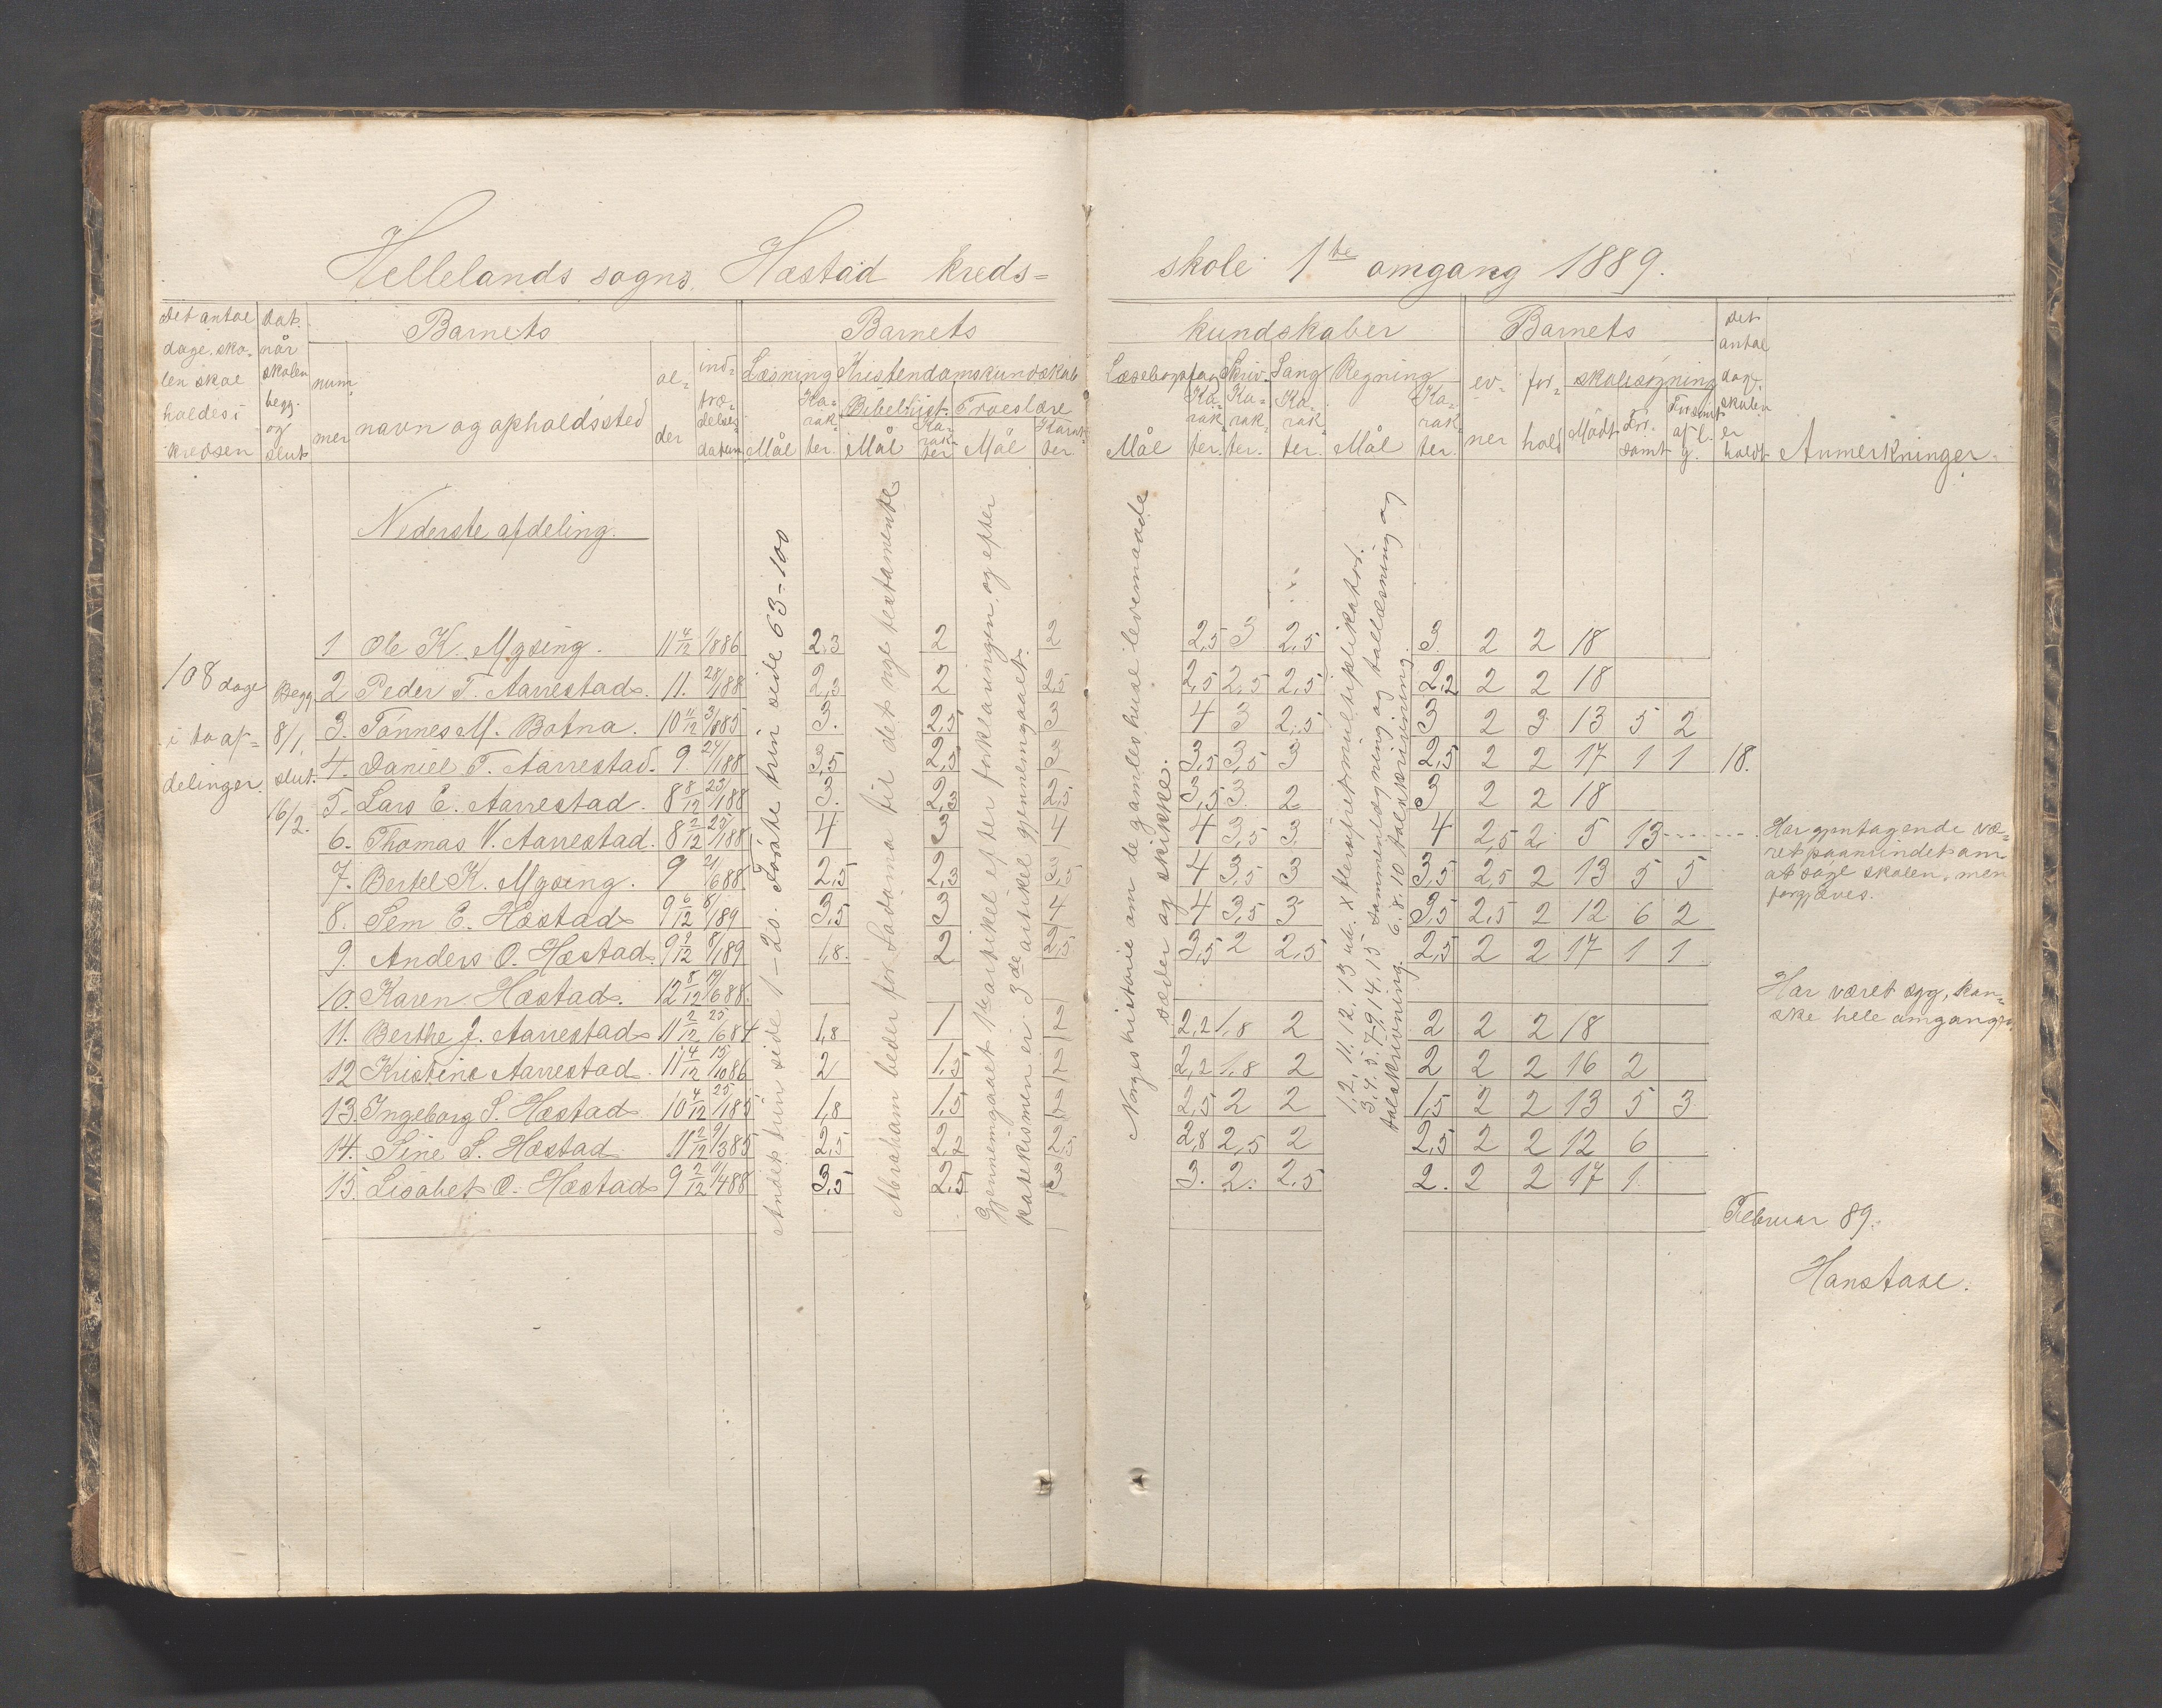 Hellelands sogns, Hæstad kreds= skole 1ste omgang 1889.
Det antal dage sko- len skal holdes i kredsen
Dat. når skolen beg. og slut.
Barnets
num- mer
navn og opholdssted
al- der
ind- træ- delses- datum
Barnets kundskaber
Læsning
Mål
Ka- rak- ter.
Kristendomskundskab
Bibelhist.
Mål
Ka- rak- ter
Troeslære
Mål
Karak- ter
Læsebogsfag
Mål
Ka- rak ter.
Skriv.
Ka- rak- ter.
Sang
Ka- rak ter.
Regning
Mål
Ka- rak- ter.
Barnets
ev- ner
for- hold
skolesøgning
Mödt
For- sömt
Forsömt af l. g.
Det antal dage skolen er holdt
Anmerkninger.
Nederste afdeling.
108 dage
i to af=
delinger.
Begg.
8/1,
slut.
16/2.
Andet trin side 1-20. Første trin side 63-100
Abraham beder for Sodoma til det nye testamente
Gjennemgaaet 1ste artikel efter forklaringen, og efter
katekismen er 3de artikel gjennemgaaet.
Norgeshistorie om de gamles huse levemaade
sæder og skikke.
1, 2, 11. 12, 13 ud. x flersifret multiplikator.
3, 4. 5. 7. 9, 14. 15 sammenlægning og tallæsning og
talskrivning. 6. 8. 10 talskrivning.
1 Ole K. Mysing. 11 4/12 1/886 2,3 2 2 2,5 3 2,5 3 2 2 18
2 Peder T. Aarrestad. 11. 28/188 2,3 2 2,5 2,5 2,5 2,5 2,2 2 2 18
3. Tönnes M. Botna. 10 11/12 3/885 3. 2,5 3 4 3 2,5 3 2 3 13 5 2
4. Daniel T. Aarrestad. 9. 24/188 3,5 2,5 3 3,5 3,5 3 2,5 2 2 17 1 1 18.
5. Lars E. Aarrestad. 8 8/12 23/188 3. 2,3 2,5 3,5 3 2 3 2 2 18
6. Thomas V. Aarrestad. 8 2/12 25/188 4 3 4 4 3,5 3 4 2,5 2 5 13 Har gjentagende væ=
ret paamindet om
at søge skolen, men
forgjæves.
7. Bertel K. Mysing. 9 21/688 2,5 2,3 3,5 4 3,5 3 3,5 2,5 2 13 5 5
8. Sem E. Hæstad 9 6/12 8/189 3,5 3 4 4 3,5 3 3,5 2,5 2 12 6 2
9. Anders O. Hæstad. 9 2/12 8/189 1,8. 2 2,5 3,5 2 2,5 2,5 2 2 17 1 1
10. Karen Hæstad. 12 8/12 19/688. Har været syg, kan=
ske hele omgangen.
11. Berthe J. Aarrestad 11 2/12 25/684 1,8 1 2 2,2 1,8 2 2 2 2 18
12 Kristine Aarrestad. 11 4/12 15/1086 2 1,5 2 2,2 1,8 2 2 2 2 16 2
13. Ingeborg S. Hæstad 10 4/12 25/185 1,8 1,5 2 2,5 2 2 1,5 2 2 13 5 3
14. Sine S. Hæstad 11 2/12 9/385 2,5 2,2 2,5 2,8 2,5 2 2,5 2 2 12 6
15. Lisabet O. Hæstad 9 2/12 11/488 3,5 2,5 3 3. 2. 2,5 2. 2 2 17 1
Februar 89.